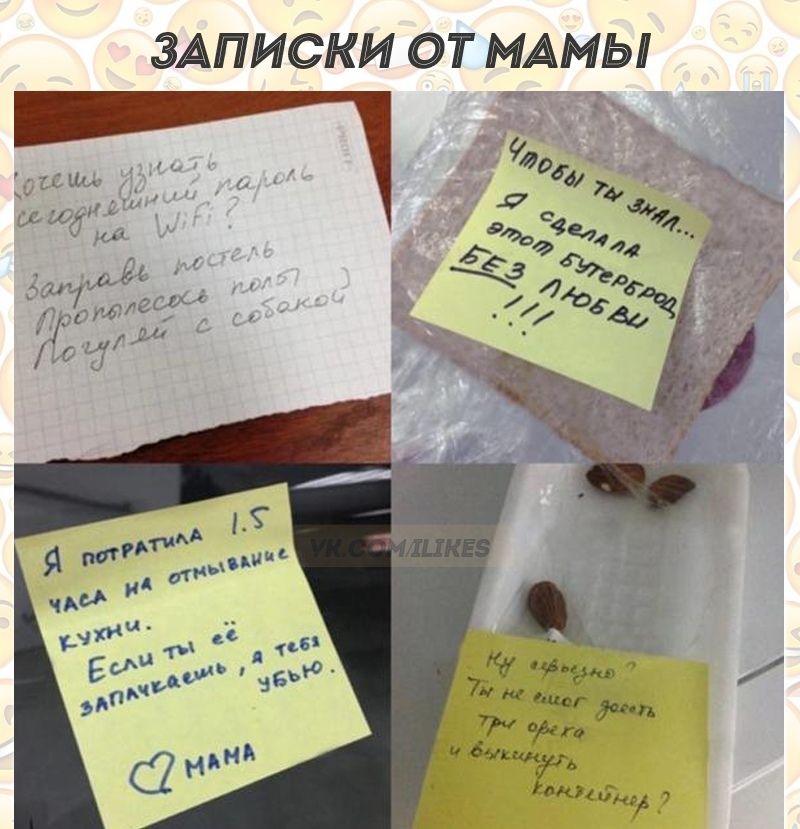 ЗАПИСКИ ОТ МАМЫ
Хочешь узнать
сегодняшний пароль
на WiFi?
Заправь постель
Пропылесось полы
Погуляй с собакой
Чтобы ты знал...
Я сделала
этот бутерброд
БЕЗ любви
!!!
Я потратила 1.5
часа на отмывание
кухни.
Если ты её
запачкаешь, я тебя
убью.
♡ МАМА
VK.COM/ILIKES
Ну серьезно?
Ты не смог доесть
три ореха
и выкинуть
контейнер?